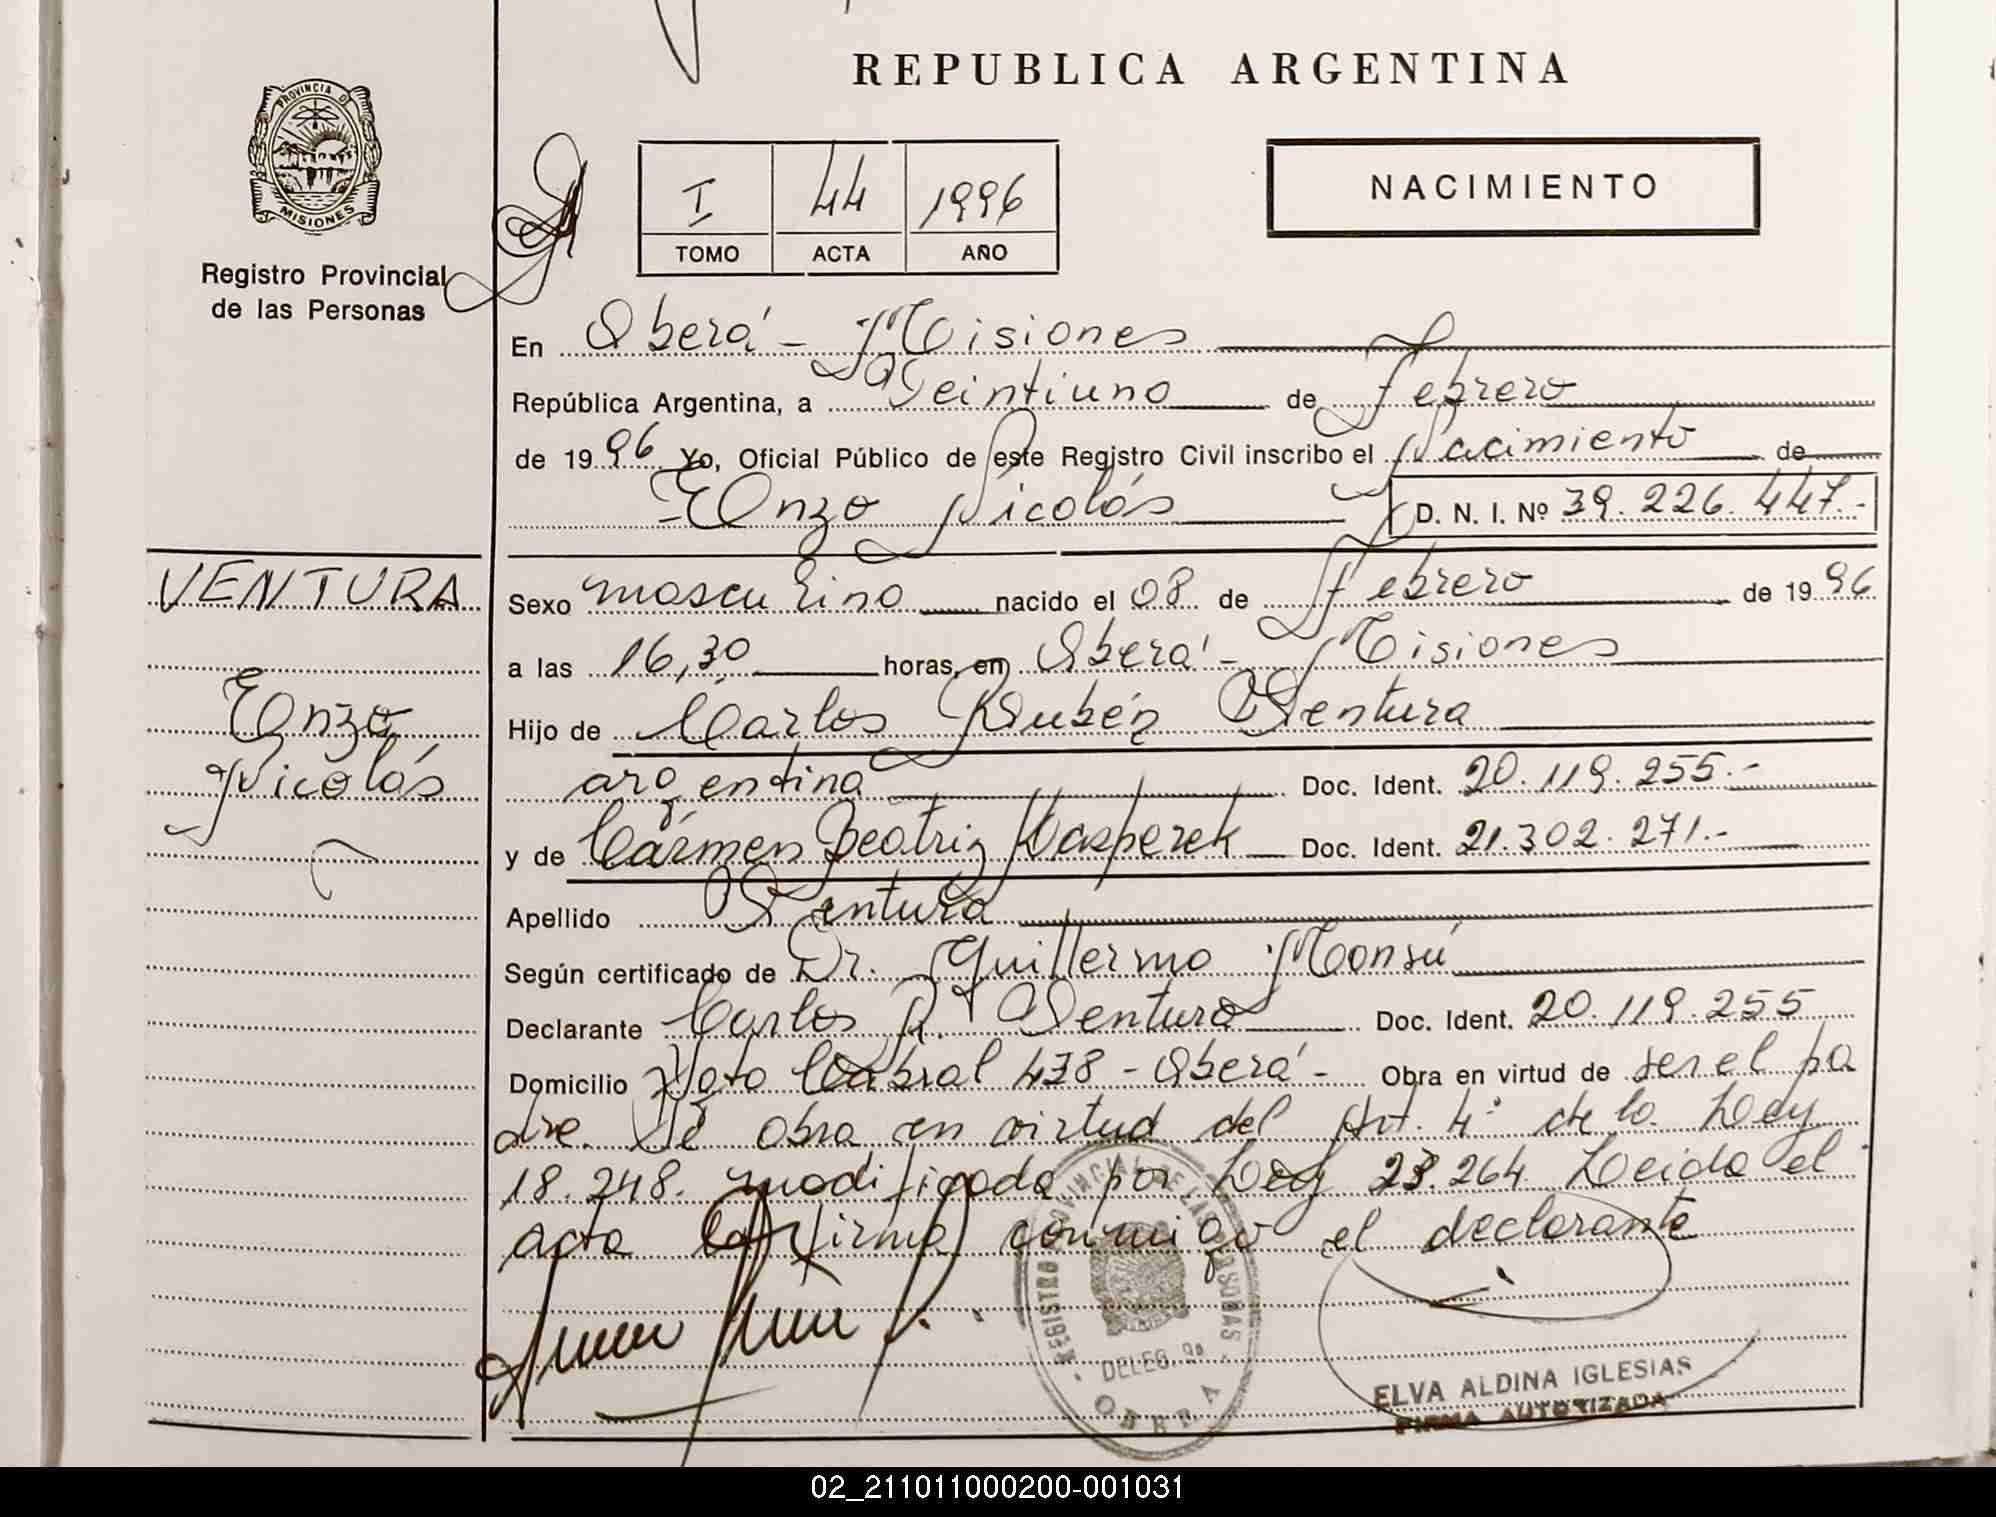 REPUBLICA ARGENTINA
PROVINCIA DE
MISIONES
Registro Provincial
de las Personas
I 44 1996
TOMO ACTA AÑO
NACIMIENTO
En Oberá - Misiones
República Argentina, a Veintiuno de Febrero
de 1996 Yo, Oficial Público de este Registro Civil inscribo el Nacimiento de
Enzo Nicolás D. N. I. Nº 39.226.447.-
VENTURA
Enzo
Nicolás
Sexo masculino nacido el 08 de Febrero de 1996
a las 16,30 horas, en Oberá - Misiones
Hijo de Carlos Rubén Ventura
argentina Doc. Ident. 20.119.255.-
y de Carmen Beatriz Kasperek Doc. Ident. 21.302.271.-
Apellido Ventura
Según certificado de Dr. Guillermo Monsú
Declarante Carlos R. Ventura Doc. Ident. 20.119.255
Domicilio Cabral 438 - Oberá - Obra en virtud de ser el pa
dre. Se obra en virtud del Art. 4° de la Ley
18.248. modificada por Ley 23.264 Leida el
acta la firma conmigo el declarante
REGISTRO PROVINCIAL DE LAS PERSONAS
DELEG.
OBERA
ELVA ALDINA IGLESIAS
FIRMA AUTORIZADA
02_211011000200-001031